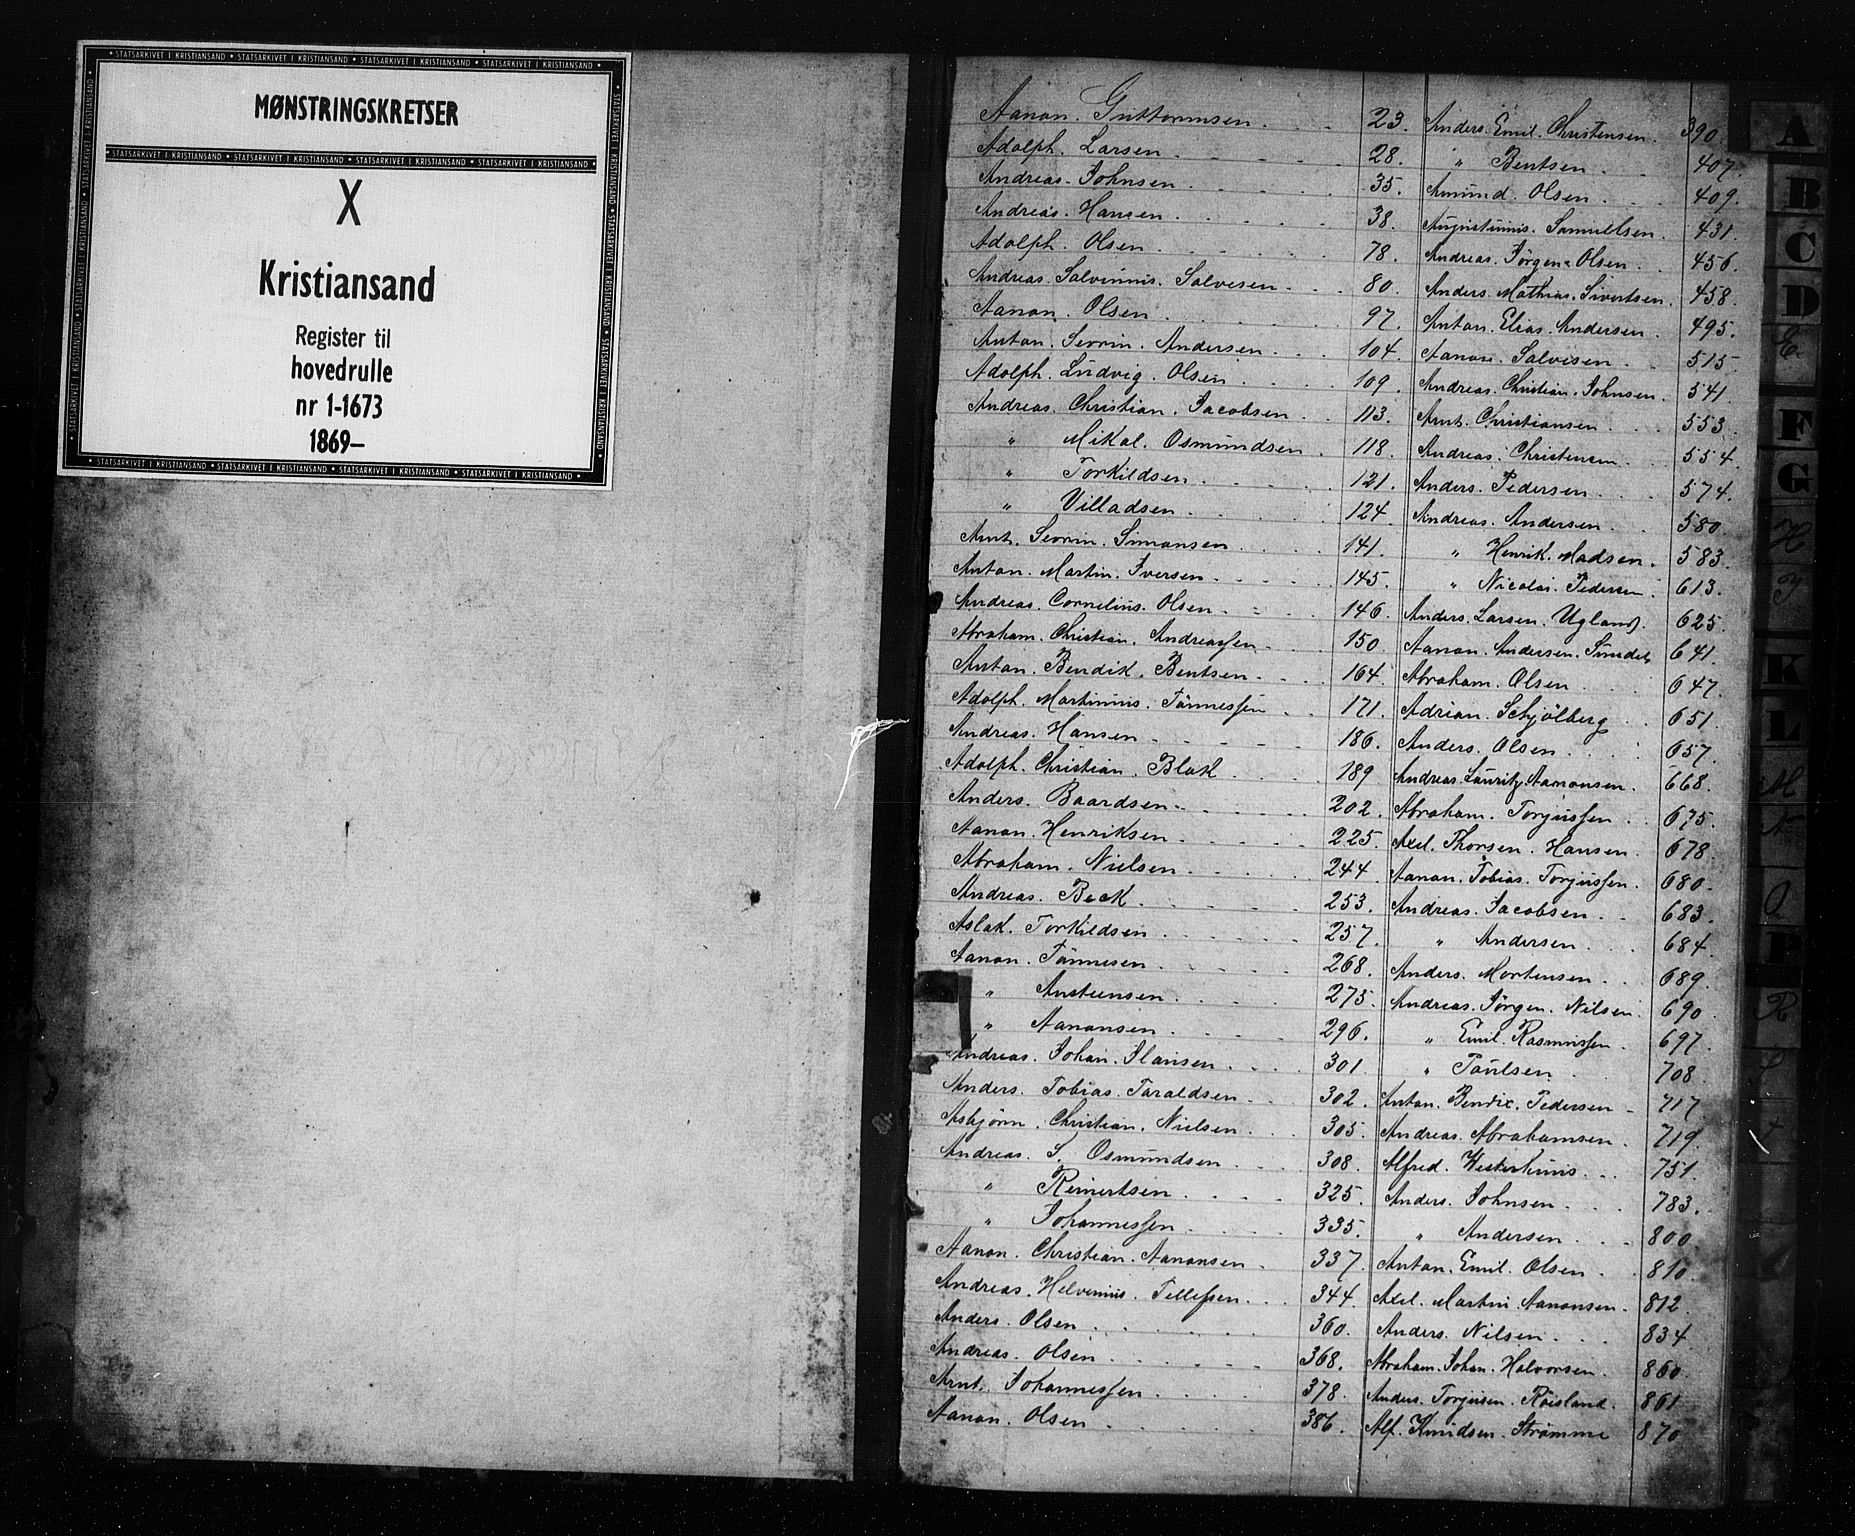 MØNSTRINGSKRETSER
X
Kristiansand
Register til
hovedrulle
nr 1-1673
1869–
Aanon. Guttormsen 23.
Adolph. Larsen 28.
Andreas. Johnsen 35.
Andreas. Hansen 38.
Adolph. Olsen 78.
Andreas. Salvinius. Salvesen 80.
Aanon. Olsen 97.
Anton. Sevrin. Andersen 104.
Adolph. Ludvig. Olsen 109.
Andreas. Christian. Jacobsen 113.
" Mikal. Osmundsen 118.
" Torkildsen 121.
" Villadsen 124.
Arnt. Sevrin. Simonsen 141.
Anton. Martin. Iversen 145.
Andreas. Cornelius. Olsen 146.
Abraham. Christian. Andreassen 150.
Anton. Bendik. Bentsen 164.
Adolph. Martinius. Tønnessen 171.
Andreas. Hansen 186.
Adolph. Christian. Blak 189
Anders. Baardsen 202.
Aanon. Henriksen 225.
Abraham. Nielsen 244
Andreas. Beck 253.
Aslak. Torkildsen 257.
Aanon. Tønnesen 268.
" Austeensen 275.
" Aanonsen 296.
Andreas. Johan. Hansen 301
Anders. Tobias. Taraldsen 302.
Asbjørn. Christian. Nielsen 305.
Andreas. S. Osmundsen 308.
" Reinertsen 325.
" Johannessen 335.
Aanon. Christian. Aanonsen 337.
Andreas. Helvinius. Tellefsen 344.
Anders. Olsen 360.
Andreas. Olsen 368.
Arnt. Johannessen 378.
Aanon. Olsen 386.
Anders. Emil. Christensen 390.
" Bentsen 407.
Amund. Olsen 409.
Augustinius. Samuelsen 431.
Andreas. Jørgen. Olsen 456.
Anders. Mathias. Sivertsen 458.
Anton. Elias. Andersen 495.
Aanon. Salvesen 515
Andreas. Christian. Johnsen 541
Arnt. Christiansen 553.
Andreas. Christensen 554.
Anders. Pedersen 574.
Andreas. Andersen 580.
" Henrik. Madsen 583.
" Nicolai. Pedersen 613.
Anders. Larsen. Ugland 625.
Aanon. Andersen. 641.
Abraham. Olsen 647.
Adrian. Schjölberg 651.
Anders. Olsen 657.
Andreas. Lauritz. Aamonsen 668.
Abraham. Torjussen 675.
Axel. Thorsen. Hansen 678.
Aanon. Tobias. Torjussen 680.
Andreas. Jacobsen 683.
" Andersen 684.
Anders. Mortensen 689.
Andreas. Jørgen. Nilsen 690.
" Emil. Rasmussen 697.
" Paulsen 708.
Anton. Bendix. Pedersen 717
Andreas. Abrahamsen 719.
Alfred. Westerhuus 751.
Anders. Johnsen 783.
" Andersen 800
Anton. Emil. Olsen 810.
Axel. Martin. Aanonsen 812.
Anders. Nilsen 834
Abraham. Johan. Halvorsen 860.
Anders. Torjusen. Røisland 861
Alf. Knudsen. Strømme 870
A
B
C
D
E
F
G
H
I
K
L
M
N
O
P
R